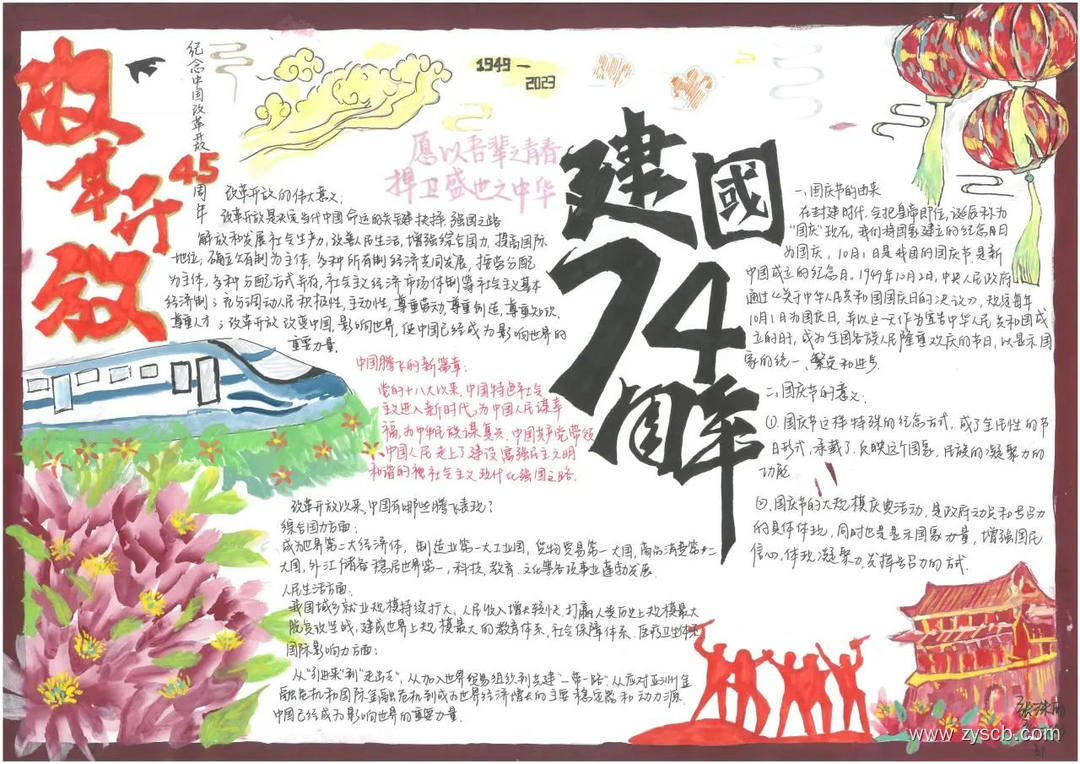 改革开放
纪念中国改革开放45周年
1949—
2023
愿以吾辈之青春
捍卫盛世之中华
建國
74
周年
改革开放的伟大意义:
改革开放是决定当代中国命运的关键抉择,强国之路
解放和发展社会生产力,改革人民生活,增强综合国力,提高国际
地位,确立公有制为主体,多种所有制经济共同发展,按劳分配
为主体,多种分配方式并存,社会主义经济市场体制等社会主义基本
经济制;充分调动人民积极性,主动性,尊重劳动,尊重创造,尊重知识,
尊重人才;改革开放改变中国,影响世界,使中国已经成为影响世界的
重要力量.
中国腾飞的新篇章:
党的十八大以来,中国特色社会
主义进入新时代,为中国人民谋幸
福,为中华民族谋复兴,中国共产党带领
中国人民走上了建设富强民主文明
和谐的社会主义现代化强国之路.
改革开放以来,中国有哪些腾飞表现?
综合国力方面:
成为世界第二大经济体,制造业第一大工业国,货物贸易第一大国,商品消费第二
大国,外汇储备稳居世界第一,科技、教育、文化等各项事业蓬勃发展.
人民生活方面.
我国城乡就业规模持续扩大,人民收入增长较快,打赢人类历史上规模最大
脱贫攻坚战,建成世界上规模最大的教育体系、社会保障体系、医疗卫生体系
国际影响力方面:
从"引进来"到"走出去",从加入世界贸易组织到共建"一带一路",从应对亚洲金
融危机和国际金融危机到成为世界经济增长的主要稳定器和动力源.
中国已经成为影响世界的重要力量.
一、国庆节的由来
在封建时代,会把皇帝即位,诞辰称为
"国庆"现在,我们将国家建立的纪念日日
为国庆,10月1日是我国的国庆节是新
中国成立的纪念日,1949年12月2日,中央人民政府
通过《关于中华人民共和国国庆日的决议》,规定每年
10月1日为国庆日,并以这一天作为宣告中华人民共和国成
立的日,成为全国各族人民隆重欢庆的节日,以显示国
家的统一、繁荣和进步.
二、国庆节的意义:
①.国庆节这种特殊的纪念方式,成了全民性的节
日形式,承载了、反映这个国家、民族的凝聚力的
功能.
国庆节的大规模庆典活动,是政府动员和号召力
的具体体现,同时也是显示国家力量,增强国民
信心,体现凝聚力,发挥号召力的方式.
www.zyscb.com